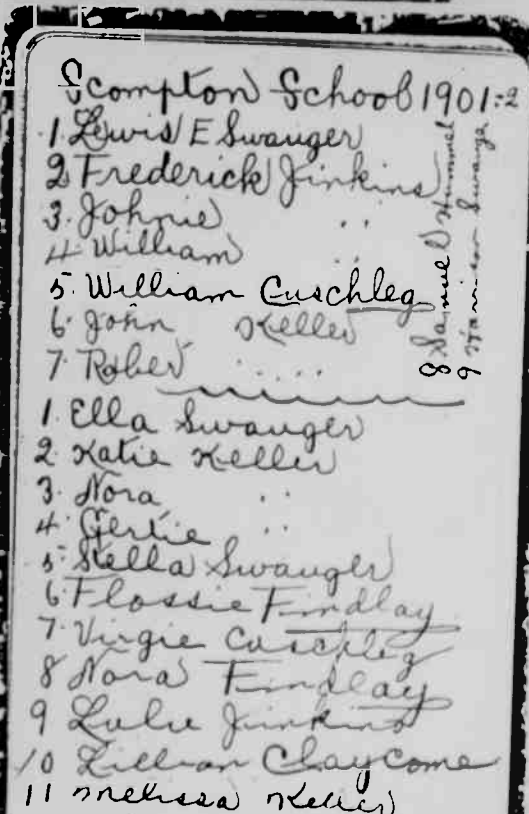 Scompton School 1901-2
1 Lewis E Swauger
2 Frederick Jinkins
3. Johnie "
4 William "
5. William Cuschleg
6. John Keller
7. Rober "
8 Samuel D Hummel
9 Harrison Swauger
1. Ella Swauger
2. Katie Keller
3. Nora "
4. Gertie "
5 Stella Swauger
6. Flossie Findlay
7. Virgie Cuschleg
8 Nora Findlay
9 Lulu Jinkins
10 Lillian Claycome
11 Melissa Keller